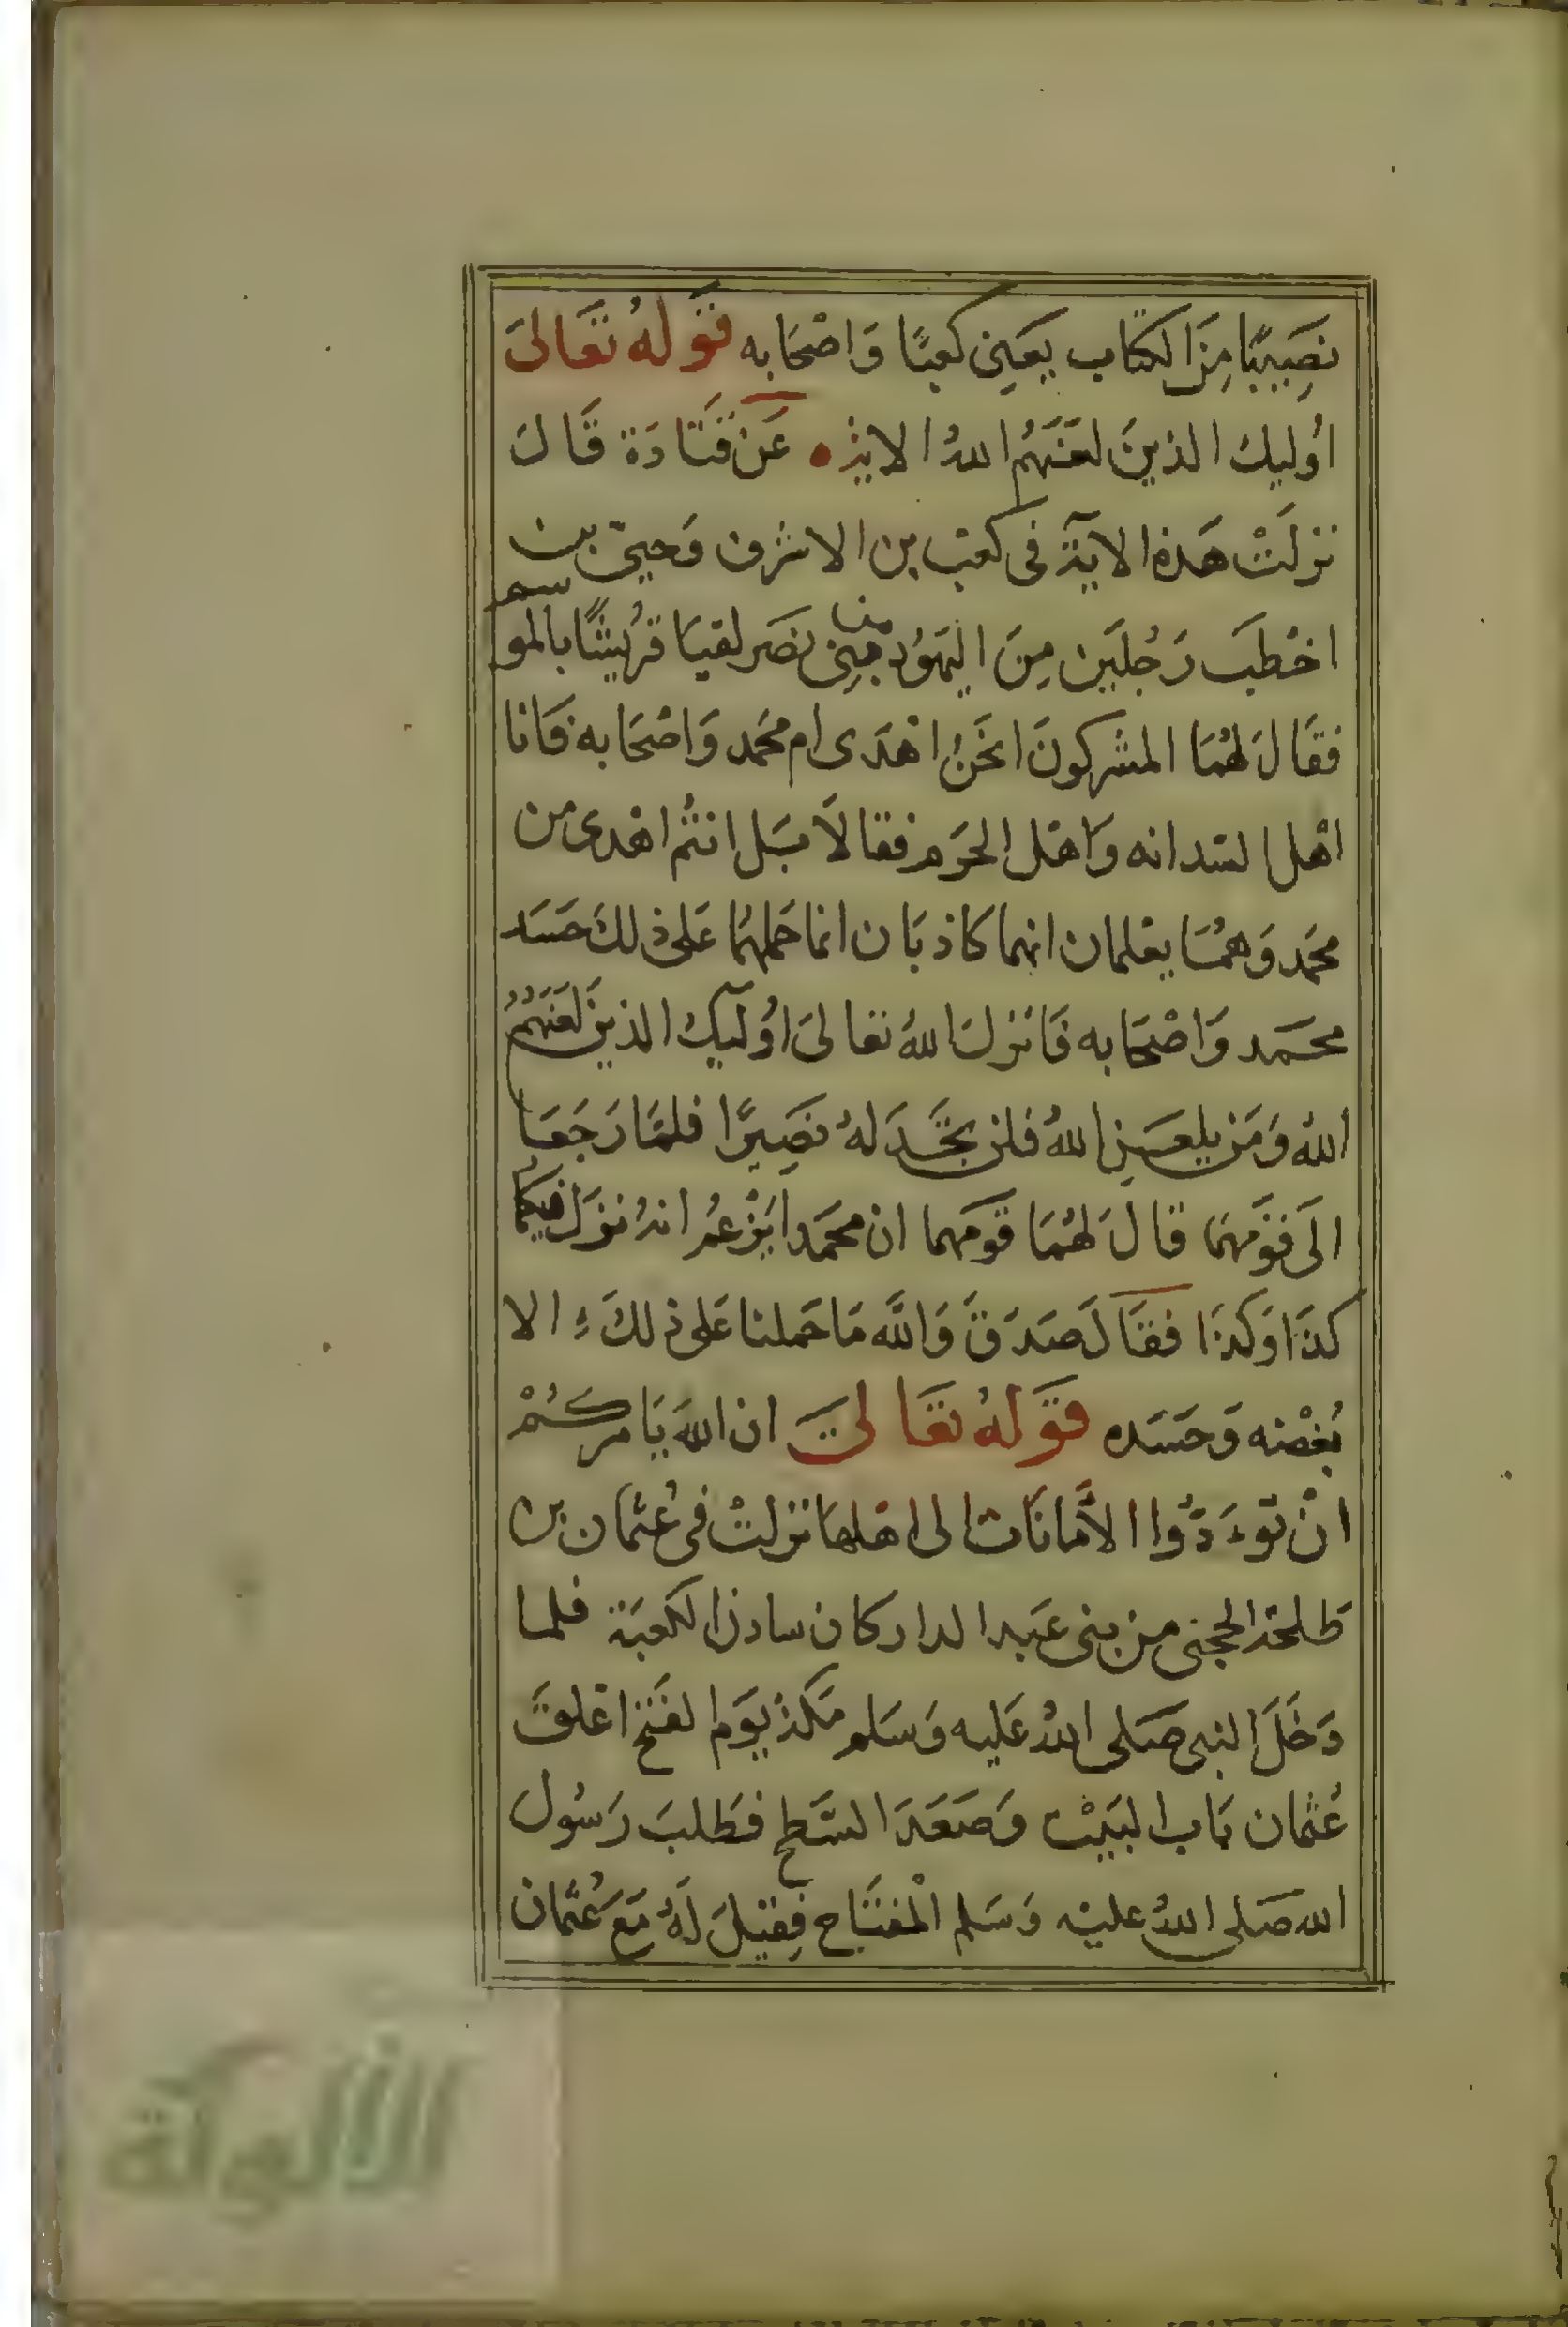 نَصِيبًا مِنَ الكتاب يَعني كعبًا وَاصْحَابه قَولهُ تَعَالىَ
اُوليك الذينَ لعَنَهُم اللهُ الاية عَن قَتَادَة قَالَ
نزلَتْ هَذه الايَة فى كعب بن الاشرف وَحيىّ بن
اخْطبَ رَجُلَين مِنَ اليَهوُد من بنى نضَر لقيَا قرُيشًا بالموسم
فقَالَ لهُمَا المشركونَ انحَنُ اهْدَى ام محَمد وَاصْحَابه فَانا
اهْل السدانه وَاهْل الحرَم فقالاَ بَل انتُم اهْدى من
محَمد وَهمُا يعْلمان انهما كاذبَان انما حَملهُمَا عَلى ذلكَ حَسَد
محَمد وَاصْحَابه فَانزلَ اللهُ تعَالىَ اُولَيك الذينَ لَعَنَهُمُ
اللهُ وَمَن يلعَنِ اللهُ فلن تجَدَ لهُ نَصِيرًا فلمَّا رَجَعَا
الىَ قَومَهِمَا قالَ لهُمَا قَومهما ان محمَدا يَزْعُم انهُ نزَلَ فيكُمَا
كذَا وَكذَا فقَالَ صَدَقَ وَاللَّه مَا حَملنا عَلى ذلكَ الا
بُغْضه وَحَسَده قَولهُ تعَالىَ ان اللهَ يَامركُمْ
انْ توُءَدُّوا الاَمَانَات الى اهْلهَا نزلتْ فى عُثمان بن
طَلحة الحجبى من بنى عَبد الدار كان سادن الكعبَة فلما
دَخَلَ النبى صَلى اللهُ عَليه وَسَلم مَكة يَوَم الفَتح اغلقَ
عُثمان بَاب البَيْت وَصَعَدَ السَّطح فطَلبَ رَسُولَ
الله صَلى اللهُ عليْه وَسَلم الْمفتَاح فِقيْلَ لَهُ مَع عُثمان
الألوكة